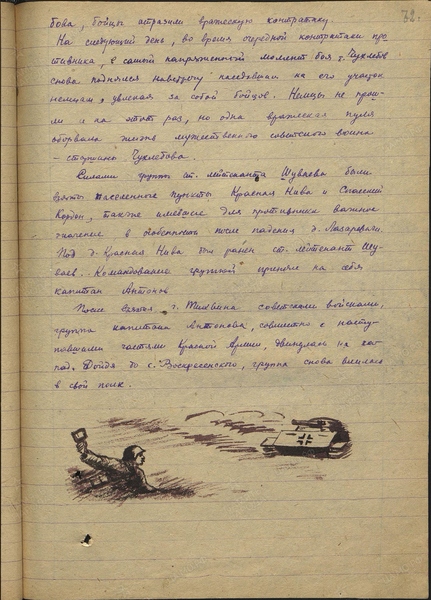 72.
бова, бойцы отразили вражескую контратаку.
На следующий день, во время очередной контратаки про
тивника, в самый напряженный момент боя т. Чуклебов
снова поднялся навстречу наседавшим на его участок
немцам, увлекая за собой бойцов. Немцы не прош-
ли и на этот раз, но одна вражеская пуля
оборвала жизнь мужественного советского воина
– старшины Чуклебова.
Силами группы ст. лейтенанта Шуваева были
взяты населенные пункты Красная Нива и Спасский
также имевшие для противника важное
значение в особенности после падения д.
Под д. Красная Нива был ранен ст. лейтенант Шу-
ваев. Командование группой принял на себя
капитан Антонов
После взятия г. советскими войсками,
группа капитана Антонова, совместно с насту-
павшими частями Красной Армии, двинулась на за-
пад. Дойдя до с. Воскресенского, группа снова влилась
в свой полк.